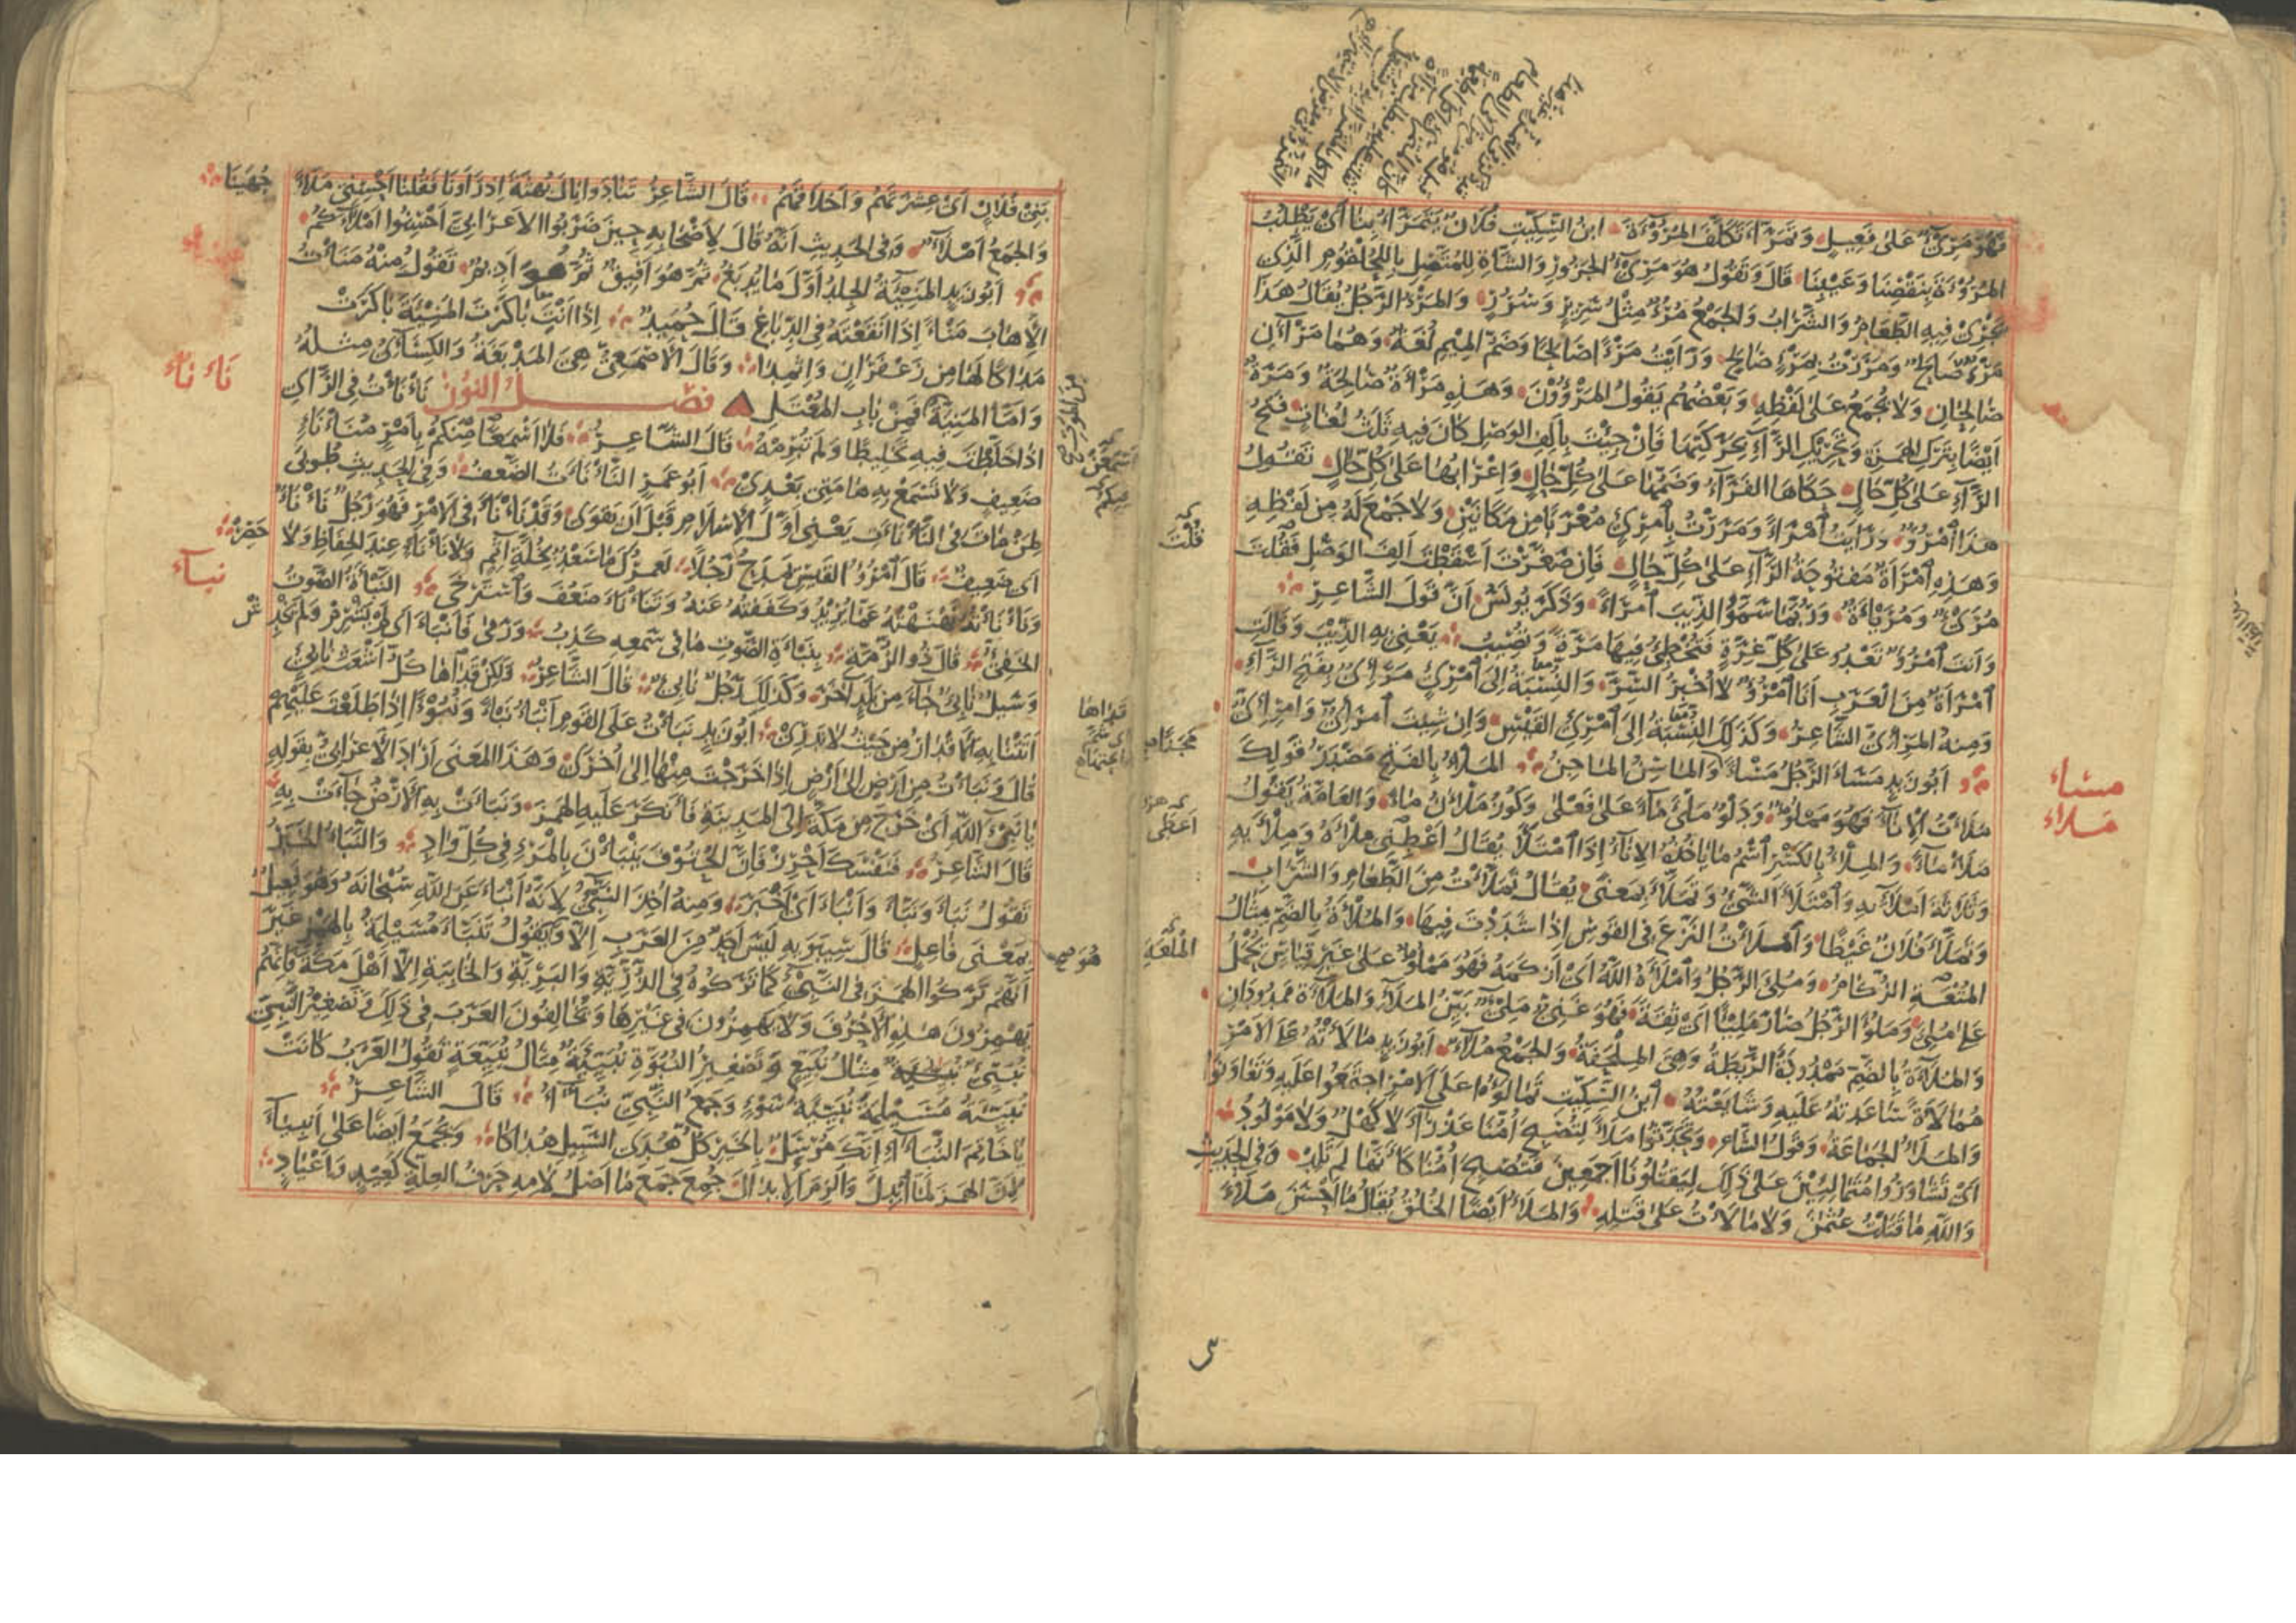 فَهُوَ مَرِيٌّ عَلَى فَعِيلٍ وَتَمَرَّأَ تَكَلَّفَ المُرُوْءَةَ ابنُ السِّكِّيتِ فُلَانٌ يَتَمَرَّأُ بِنَا أَىْ يَطْلُبُ
المُرُوْءَةَ بِنَقْصِنَا وَعَيْبِنَا قَالَ وَتَقُولُ هُوَ مَرِئُ الجَزُورِ وَالشَّاةِ لِلْمُتَّصِلِ بِالحُلْقُومِ الَّذِى
يَجْرِىْ فِيهِ الطَّعَامُ وَالشَّرَابُ وَالجَمْعُ مُرُؤٌ مِثْلُ سَرِيرٍ وَسُرُرٍ وَالمَرْءُ الرَّجُلُ يُقَالُ هَذَا
مَرْءٌ صَالِحٌ وَمَرَرْتُ بِمَرْءٍ صَالِحٍ وَرَأَيْتُ مَرْءًا صَالِحًا وَضَمُّ المِيمِ لُغَةٌ وَهُمَا مَرْآنِ
صَالِحَانِ وَلَا يُجْمَعُ عَلَى لَفْظِهِ وَبَعْضُهُمْ يَقُولُ المَرْؤُوْنَ وَهَذِهِ مَرْأَةٌ صَالِحَةٌ وَمَرَةٌ
أَيْضًا بِتَرْكِ الهَمْزَةِ وَتَحْرِيْكِ الرَّآءِ بِحَرَكَتِهَا فَإِنْ جِئْتَ بِأَلِفِ الوَصْلِ كَانَ فِيهِ ثَلَثُ لُغَاتٍ فَتْحُ
الرَّآءِ عَلَى كُلِّ حَالٍ حَكَاهَا الفَرَّآءُ وَضَمُّهَا عَلَى كُلِّ حَالٍ وَإِعْرَابُهَا عَلَى كُلِّ حَالٍ تَقُولُ
هَذَا امْرُؤٌ وَرَأَيْتُ امْرَأً وَمَرَرْتُ بِامْرِئٍ مُعْرَبًا مِنْ مَكَانَيْنِ وَلَا جَمْعَ لَهُ مِنْ لَفْظِهِ
وَهَذِهِ امْرَأَةٌ مَفْتُوحَةُ الرَّآءِ عَلَى كُلِّ حَالٍ فَإِنْ صَغَّرْتَ أَسْقَطْتَ أَلِفَ الوَصْلِ فَقُلْتَ
مُرَيْءٌ وَمُرَيْئَةٌ وَرُبَّمَا سَمَّوُا الذِّئْبَ امْرَأً وَذَكَرَ يُونُسُ أَنَّ قَوْلَ الشَّاعِرِ
وَأَنْتَ امْرُؤٌ تَعْدُو عَلَى كُلِّ غِرَّةٍ فَتُخْطِئُ فِيهَا مَرَّةً وَتُصِيبُ يَعْنِى بِهِ الذِّئْبَ وَقَالَتِ
امْرَأَةٌ مِنَ العَرَبِ أَنَا امْرُؤٌ لَا أُخْبِرُ السِّرَّ وَالنِّسْبَةُ إِلَى امْرِئٍ مَرَئِىٌّ بِفَتْحِ الرَّآءِ
وَمِنْهُ المَرَئِىُّ الشَّاعِرُ وَكَذَلِكَ النِّسْبَةُ إِلَى امْرِئِ القَيْسِ وَإِنْ شِئْتَ امْرِئِىٌّ
أَبُوزَيْدٍ مَسَأَ الرَّجُلُ مَسْأً وَالمَاسِئُ المَاجِنُ المَلْأُ بِالفَتْحِ مَصْدَرُ قَوْلِكَ
مَلَأْتُ الْإِنَآءَ فَهُوَ مَمْلُوٌّ وَدَلْوٌ مَلْأَى مَآءً عَلَى فَعْلَى وَكُوزٌ مَلْآنُ مَآءً وَالعَامَّةُ يَقُولُ
مَلًا مَآءً وَالمِلْءُ بِالكَسْرِ اسْمُ مَا يَأْخُذُهُ الإِنَآءُ إِذَا امْتَلَأَ يُقَالُ أَعْطِنِى مِلْأَهُ وَمِلْأَيْهِ
وَثَلَاثَةَ أَمْلَآئِهِ وَامْتَلَأَ الشَّىْءُ وَتَمَلَّأَ بِمَعْنًى يُقَالُ تَمَلَّأْتُ مِنَ الطَّعَامِ وَالشَّرَابِ
وَتَمَلَّأَ فُلَانٌ غَيْظًا وَأَمْلَأْتُ النَّزْعَ فِى القَوْسِ إِذَا شَدَدْتَ فِيهَا وَالمُلْأَةُ بِالضَّمِّ مِثَالُ
المُتْعَةِ الزُّكَامُ وَمُلِئَ الرَّجُلُ وَأَمْلَأَهُ اللَّهُ أَىْ أَزْكَمَهُ فَهُوَ مَمْلُوٌّ عَلَى غَيْرِ قِيَاسٍ يُحْمَلُ
عَلَى مُلِئَ وَمَلُؤَ الرَّجُلُ صَارَ مَلِيئًا أَىْ ثِقَةً فَهُوَ غَنِىٌّ مَلِئٌ بَيِّنُ المَلَآءِ وَالمَلَآءَةِ مَمْدُودَانِ
وَالمُلَآءَةُ بِالضَّمِّ مَمْدُودَةً الرَّيْطَةُ وَهِىَ المِلْحَفَةُ وَالجَمْعُ مُلَآءٌ أَبُوزَيْدٍ مَالَأْتُهُ عَلَى الأَمْرِ
مُمَالَأَةً سَاعَدْتُهُ عَلَيْهِ وَشَايَعْتُهُ ابْنُ السِّكِّيتِ تَمَالَؤُا عَلَى الأَمْرِ اجْتَمَعُوا عَلَيْهِ وَتَعَاوَنُوا
وَالمَلَأُ الجَمَاعَةُ وَقَوْلُ الشَّاعِرِ وَتَحَدَّثُوا مَلَأً لِتُصْبِحَ أُمُّنَا عَذْرَآءَ لَا كَهْلٌ وَلَا مَوْلُودُ
أَىْ تَشَاوَرُوا مُتَمَالِئِيْنَ عَلَى ذَلِكَ لِيَقْتُلُونَا أَجْمَعِينَ فَتُصْبِحَ أُمُّنَا كَأَنَّهَا لَمْ تَلِدْ وَفِى الحَدِيثِ
وَاللَّهِ مَا قَتَلْتُ عُثْمَنَ وَلَا مَالَأْتُ عَلَى قَتْلِهِ وَالمَلَأُ أَيْضًا الخُلُقُ يُقَالُ مَا أَحْسَنَ مَلَأَ
مسَاء
مَلاء
قُلْتَ
أعْطِى
بَنِىْ فُلَانٍ أَىْ عِشْرَتَهُمْ وَأَخْلَاقَهُمْ قَالَ الشَّاعِرُ تَنَادَوْا يَالَ بُهْثَةَ إِذْ رَأَوْنَا فَقُلْنَا أَحْسِنِى مَلَأً
جُهَيْنَا
وَالجَمْعُ أَمْلَآءٌ وَفِى الحَدِيثِ أَنَّهُ قَالَ لِأَصْحَابِهِ حِينَ ضَرَبُوا الأَعْرَابِىَّ أَحْسِنُوا أَمْلَآءَكُمْ
أَبُوزَيْدٍ المَنِيْئَةُ الجِلْدُ أَوَّلَ مَا يُدْبَغُ ثُمَّ هُوَ أَفِيقٌ ثُمَّ هُوَ أَدِيمٌ تَقُولُ مِنْهُ مَنَأْتُ
الْإِهَابَ مَنْأً إِذَا أَنْقَعْتَهُ فِى الدِّبَاغِ قَالَ حُمَيْدٌ إِذَا أَنْتِ بَاكَرْتِ المَنِيْئَةَ بَاكَرَتْ
مَدَاكًا لَهَا مِنْ زَعْفَرَانٍ وَإِثْمِدَا وَقَالَ الأَصْمَعِىُّ هِىَ المَدْبَغَةُ وَالكِسَآئِىُّ مِثْلُهُ
وَأَمَّا المَنِيَّةُ فَمِنْ بَابِ المُعْتَلِّ فصل النون نَأْنَأْتُ فِى الرَّأْىِ
إِذَا خَلَّطْتَ فِيهِ تَخْلِيطًا وَلَمْ تُبْرِمْهُ قَالَ الشَّاعِرُ فَلَا أَسْمَعَنْ مِنْكُمْ بِأَمْرٍ مُنَأْنَإٍ
ضَعِيفٍ وَلَا تَسْمَعْ بِهِ هَامَتِى بَعْدِىْ أَبُو عَمْرٍو النَّأْنَأَةُ الضَّعْفُ وَفِى الحَدِيثِ طُوبَى
لِمَنْ مَاتَ فِى النَّأْنَأَةِ يَعْنِى أَوَّلَ الْإِسْلَامِ قَبْلَ أَنْ يَقْوَى وَقَدْ نَأْنَأَ فِى الأَمْرِ فَهُوَ رَجُلٌ نَأْنَأٌ
أَىْ ضَعِيفٌ قَالَ امْرُؤُ القَيْسِ يَمْدَحُ رَجُلًا لَعَمْرُكَ مَا سَعْدٌ بِخُلَّةِ آثِمٍ وَلَا نَأْنَإٍ عِنْدَ الحِفَاظِ وَلَا حَصِرْ
وَنَأْنَأْتُهُ نَهْنَهْتُهُ عَمَّا يُرِيْدُ وَكَفَفْتُهُ عَنْهُ وَتَنَأْنَأَ ضَعُفَ وَاسْتَرْخَى النَّبْأَةُ الصَّوْتُ
الخَفِىُّ قَالَ ذُو الرُّمَّةِ بِنَبْأَةِ الصَّوْتِ مَا فِى سَمْعِهِ كَذِبُ وَرَمَى فَأَنْبَأَ أَىْ لَمْ يَشْرِمْ وَلَمْ يَخْدِشْ
وَسَيْلٌ نَابِئٌ جَآءَ مِنْ بَلَدٍ آخَرَ وَكَذَلِكَ رَجُلٌ نَابِئٌ قَالَ الشَّاعِرُ وَلَكِنْ قَذَاهَا كُلُّ أَشْعَثَ نَابِئٍ
أَتَتْنَا بِهِ الأَقْدَارُ مِنْ حَيْثُ لَا نَدْرِىْ أَبُوزَيْدٍ نَبَأْتُ عَلَى القَوْمِ أَنْبَأُ نَبْأً وَنُبُوْءًا إِذَا طَلَعْتَ عَلَيْهِمْ
قَالَ وَنَبَأْتُ مِنْ أَرْضٍ إِلَى أَرْضٍ إِذَا خَرَجْتَ مِنْهَا إِلَى أُخْرَى وَهَذَا المَعْنَى أَرَادَ الأَعْرَابِىُّ بِقَوْلِهِ
يَا نَبِىْءَ اللَّهِ أَىْ خَرَجَ مِنْ مَكَّةَ إِلَى المَدِينَةِ فَأَنْكَرَ عَلَيْهِ الهَمْزَ وَنَبَأَتْ بِهِ الأَرْضُ جَآءَتْ بِهِ
قَالَ الشَّاعِرُ فَنَفْسَكَ أَحْرِزْ فَإِنَّ الحُتُوفَ يَنْبَأْنَ بِالمَرْءِ فِى كُلِّ وَادِ وَالنَّبَأُ الخَبَرُ
تَقُولُ نَبَأَ وَنَبَّأَ وَأَنْبَأَ أَىْ أَخْبَرَ وَمِنْهُ أُخِذَ النَّبِىْءُ لِأَنَّهُ أَنْبَأَ عَنِ اللَّهِ سُبْحَانَهُ وَهُوَ فَعِيلٌ
بِمَعْنَى فَاعِلٍ قَالَ سِيبَوَيْهِ لَيْسَ أَحَدٌ مِنَ العَرَبِ إِلَّا وَيَقُولُ تَنَبَّأَ مُسَيْلِمَةُ بِالهَمْزِ غَيْرَ
أَنَّهُمْ تَرَكُوا الهَمْزَ فِى النَّبِىِّ كَمَا تَرَكُوهُ فِى الذُّرِّيَّةِ وَالبَرِيَّةِ وَالخَابِيَةِ إِلَّا أَهْلَ مَكَّةَ فَإِنَّهُمْ
يَهْمِزُونَ هَذِهِ الأَحْرُفَ وَلَا يَهْمِزُونَ فِى غَيْرِهَا وَيُخَالِفُونَ العَرَبَ فِى ذَلِكَ وَتَصْغِيرُ النَّبِىِّ
نُبَيِّئٌ مِثَالُ نُبَيِّعٍ وَتَصْغِيرُ النُّبُوَّةِ نُبَيِّئَةٌ مِثَالُ نُبَيِّعَةٍ تَقُولُ العَرَبُ كَانَتْ
نُبَيِّئَةُ مُسَيْلِمَةَ نُبَيِّئَةَ سَوْءٍ وَجَمْعُ النَّبِىِّ نُبَآءُ قَالَ الشَّاعِرُ
يَا خَاتِمَ النُّبَآءِ إِنَّكَ مُرْسَلٌ بِالخَيْرِ كُلُّ هُدَى السَّبِيلِ هُدَاكَا وَيُجْمَعُ أَيْضًا عَلَى أَنْبِيَآءَ
لِأَنَّ الهَمْزَ لَمَّا أُبْدِلَ وَأُلْزِمَ الإِبْدَالَ جُمِعَ جَمْعَ مَا أَصْلُ لَامِهِ حَرْفُ العِلَّةِ كَعِيدٍ وَأَعْيَادٍ
نَاء نَاء
نباَء
قذاها
هُوَ صح